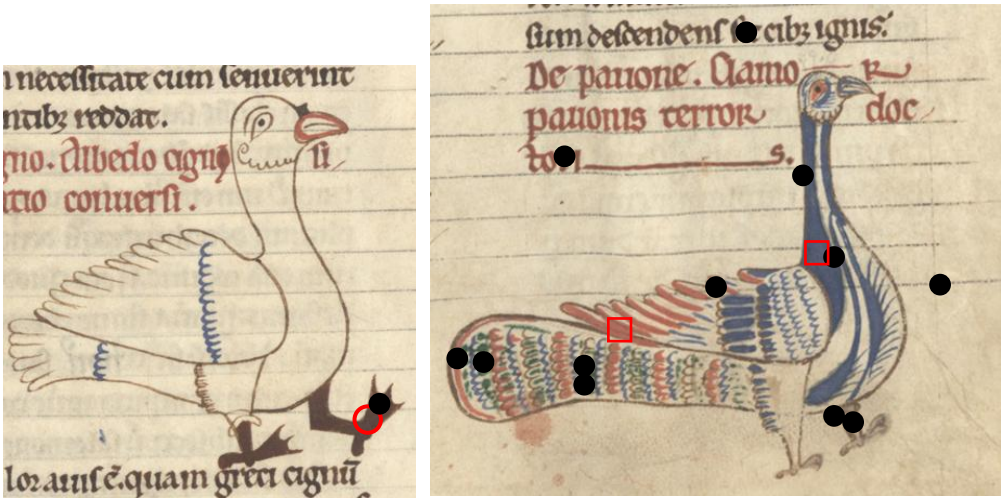 n necessitate cum senuerint
ntibꝫ reddat.
gno. Albedo cigni si
atio conuersi.
lor auis ē. quam greci cignū
sum descendens cibꝫ ignis.
De pauone. Clamo R
pauonis terror doc
s.